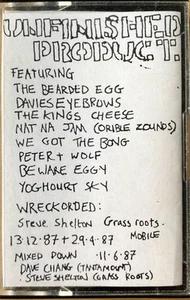 UNFINISHED
PRODUCT.
FEATURING
THE BEARDED EGG
DAVIES EYEBROWS
THE KINGS CHEESE
NAT NA JAM (ORIBLE ZOUNDS)
WE GOT THE BONG
PETER + WOLF
BEWARE EGGY
YOGHOURT SKY
WRECKORDED:
Steve Shelton Grass roots.
MOBILE
13.12.87 + 29.4.87
MIXED DOWN 11.6.87
DAVE CHANG (TANTAMOUNT)
STEVE SHELTON (GRASS ROOTS)